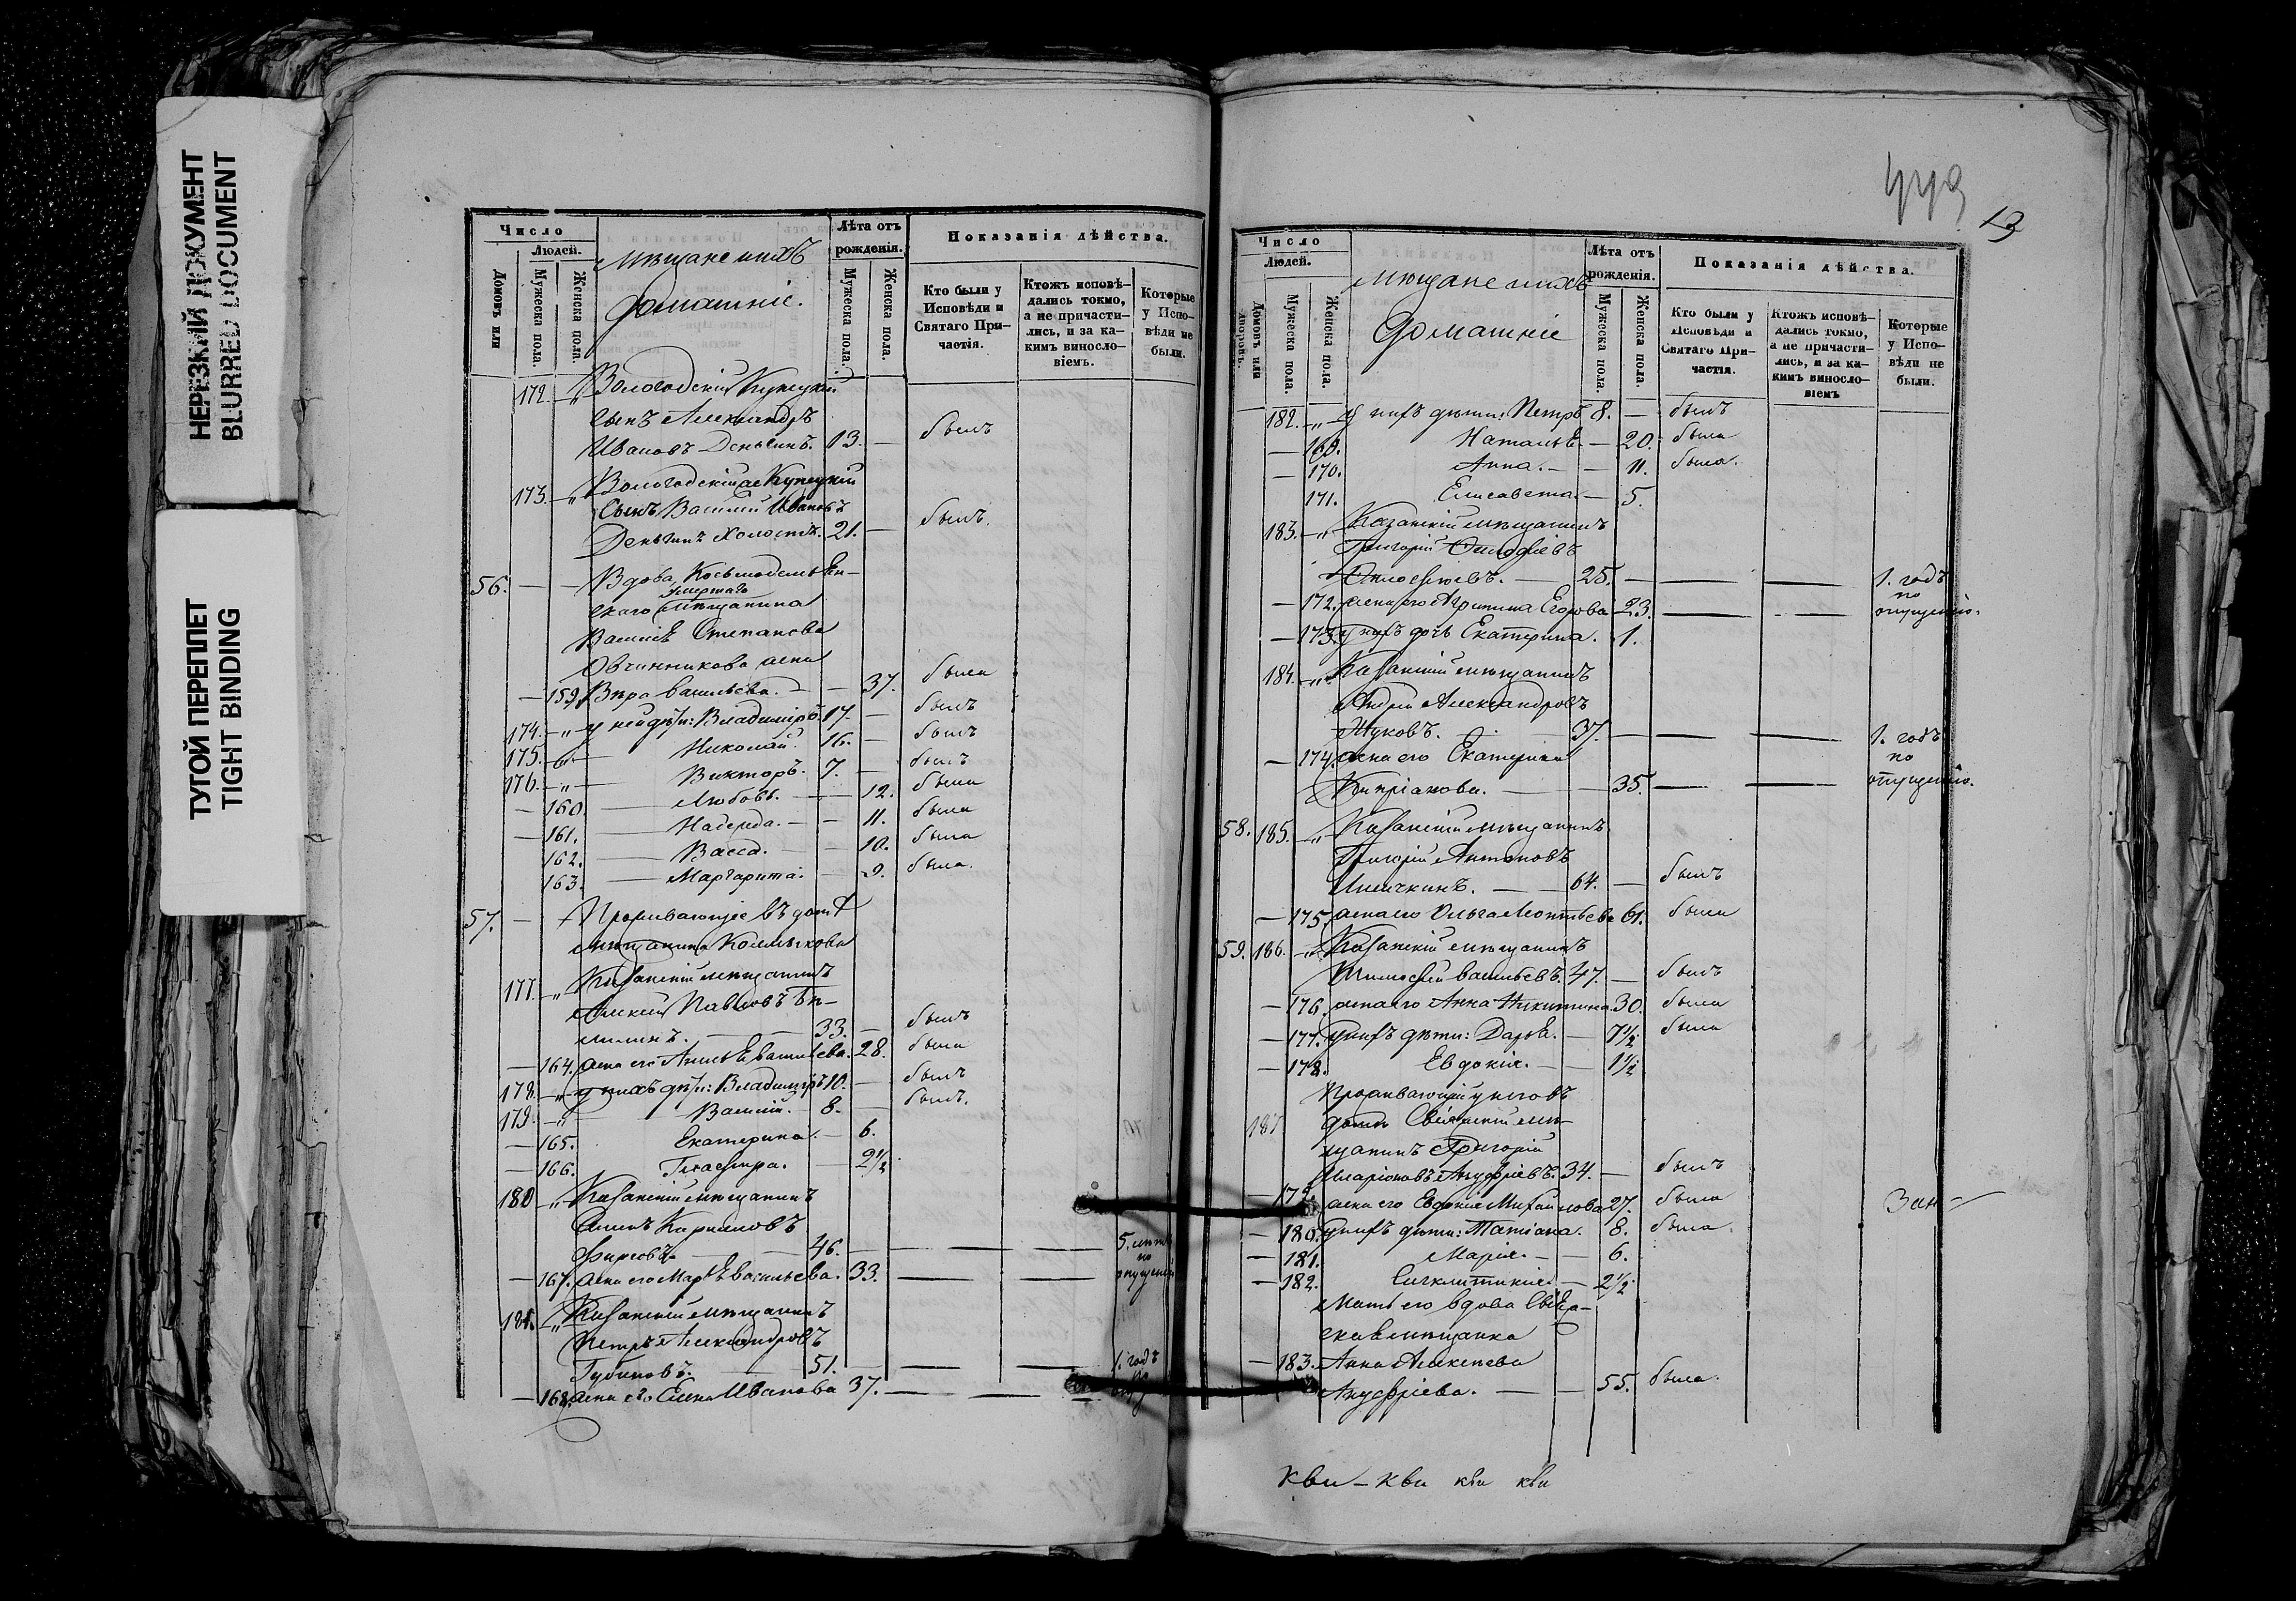 НЕРЕЗКИЙ ДОКУМЕНТ
BLURRED DOCUMENT
ТУГОЙ ПЕРЕПЛЕТ
TIGHT BINDING
Число
Людей.
Домовъ или
Мужеска пола.
Женска пола.
Мѣщане и ихъ
домашніе.
Лѣта отъ
рожденія.
Мужеска пола.
Женска пола.
Показанія дѣйства.
Кто были у
Исповѣди и
Святаго При-
частія.
Ктожъ исповѣ-
дались токмо,
а не причасти-
лись, и за ка-
кимъ виносло-
віемъ.
Которые
у Испо-
вѣди не
были.
172. Вологодскій Купецкій
сынъ Александръ
Ивановъ Деньгинъ. 13. — былъ
173. Вологодскій же Купецкій
Сынъ Василій Ивановъ
Деньгинъ холостъ. 21. — былъ.
56. — — Вдова, Козьмодемьян-
умершаго
скаго мѣщанина
Василія Степанова
Овчинникова жена
— 159. Вѣра Васильева. — — 37. была
174. — „ У ней дѣти: Владиміръ 17. — былъ
175. — „ — Николай. 16. — былъ
176. — „ — Викторъ. 7. — былъ
— 160. — Любовь. — — 12. была
— 161. — Надежда. — — 11. была
162. — Васса. — — 10. была
163. — Маргарита. — 9. была.
57. — Проживающіе въ домѣ
мѣщанина Колмыкова
177. — „ Казанскій мѣщанинъ
Алексій Павловъ Бѣ-
лилинъ. — — 33. — былъ
— 164. жена его Анисья Васильева. 28. была
178. — „ У нихъ дѣти: Владиміръ 10. — былъ
179. — „ Василій. — 8. — былъ.
— 165. Екатерина. — 6.
— 166. Глафира. — 2½
180 — „ Казанскій мѣщанинъ
Кириловъ
Фирсовъ. — 46. — — — 5. лѣтъ
по
— 167. жена его Марья Васильева. 33. — — опущенію
181. — „ Казанскій мѣщанинъ
Петръ Александровъ
Губиновъ. — 51. — — — 1. годъ
— 168. жена его Елена Иванова 37. — —
449
13
Число
Людей.
Домовъ или
дворовъ.
Мужеска пола.
Женска пола.
Мѣщане и ихъ
домашніе
Лѣта отъ
рожденія.
Мужеска пола.
Женска пола.
Показанія дѣйства.
Кто были у
Исповѣди и
Святаго При-
частія.
Ктожъ исповѣ-
дались токмо,
а не причасти-
лись, и за ка-
кимъ винословіемъ
Которые
у Испо-
вѣди не
были.
182. — „ У нихъ дѣти: Петръ 8. — былъ
— 169. Наталья — — 20. была
— 170. Анна. — — 11. была.
171. Елисавета. — 5.
183. — „ Казанскій мѣщанинъ
Григорій
— 25. — — — 1. годъ
по
— 172. жена его Агрипина Егорова 23. — — опущенію.
— 173. У нихъ дочь Екатерина. 1.
184. — „ Казанскій мѣщанинъ
Андрей Александровъ
Жуковъ. — 37. — — — 1. годъ
по
— 174. жена его Екатерина
Кипріанова. — — 35. — — опущенію.
58. 185. — „ Казанскій мѣщанинъ
Григорій Антоновъ
— — 64. — былъ
— 175. жена его Ольга Леонтьева 61. была
59. 186. — „ Казанскій мѣщанинъ
Тимофей Васильевъ. 47. — былъ
— 176. жена его Анна Никитина 30. была
— 177. У нихъ дѣти: Дарья. — 7½ была
— 178. Евдокія. — — 1½
Проживающій у него въ
187 домѣ Свіяжскій мѣ-
щанинъ Григорій
Иларіоновъ Ануфріевъ. 34. — былъ
— 179. жена его Евдокія Михайлова 27. была
Зан —
— 180. У нихъ дѣти: Татіана. 8. была.
— 181. Марія. — — 6.
— 182. — 2½
Мать его вдова Свіяж-
ская мѣщанка
— 183. Анна Алексѣева
Ануфріева. — — 55. была.
кви – кви кви кви